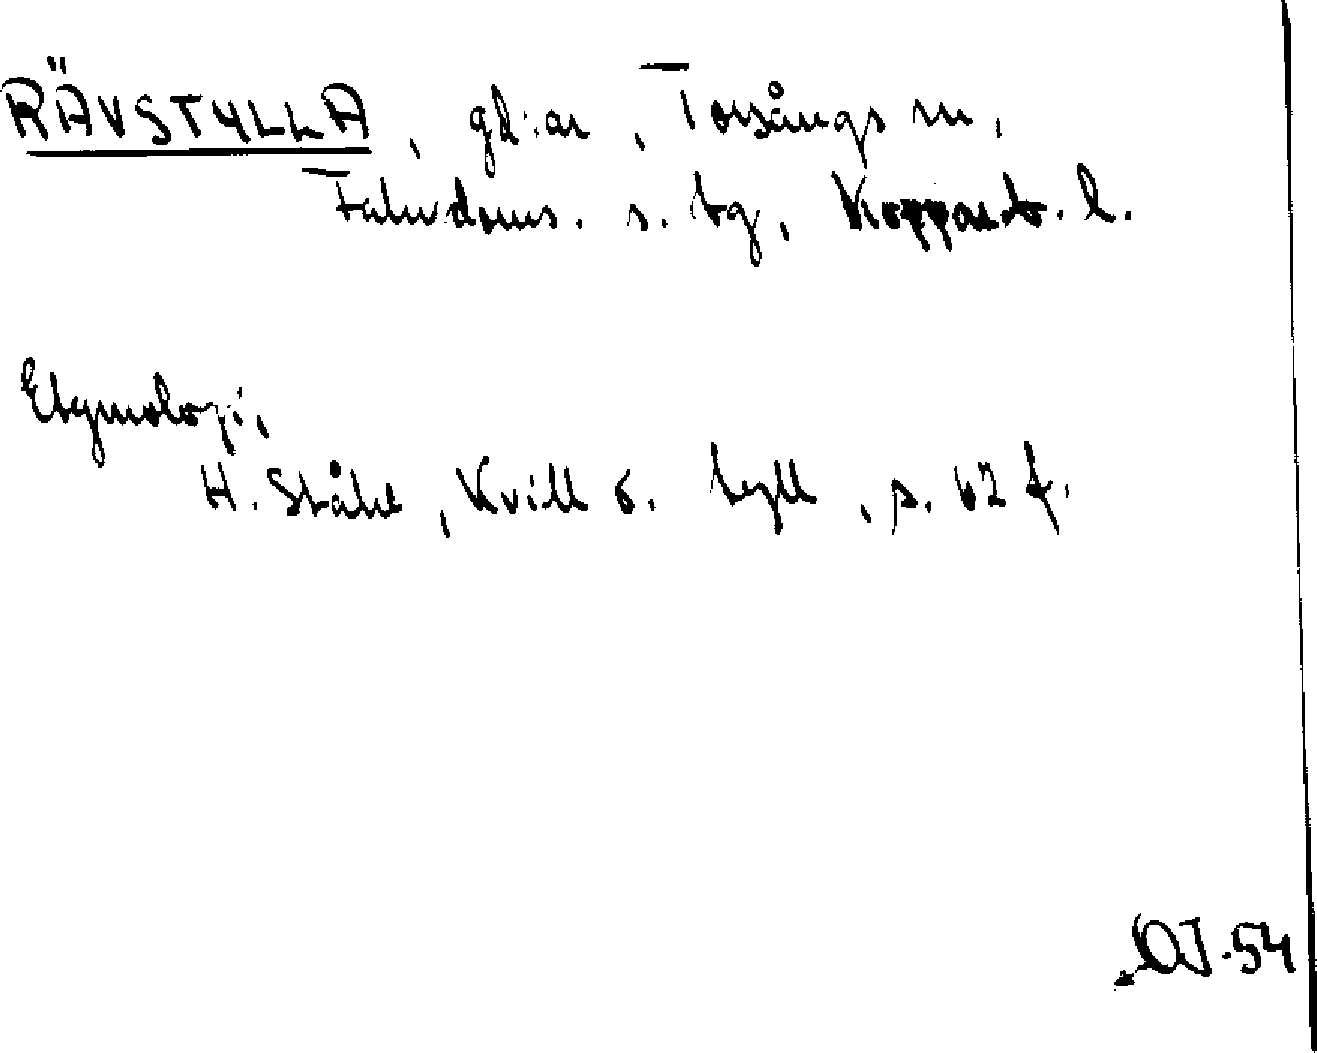 RÄVSTYLLA, gd:ar, Torsångs sn,
Falu doms. s. tg, Kopparb. l.
Etymologi,
H. Ståhl, Kvill o. tyll, s. 62 f.
OJ. 54